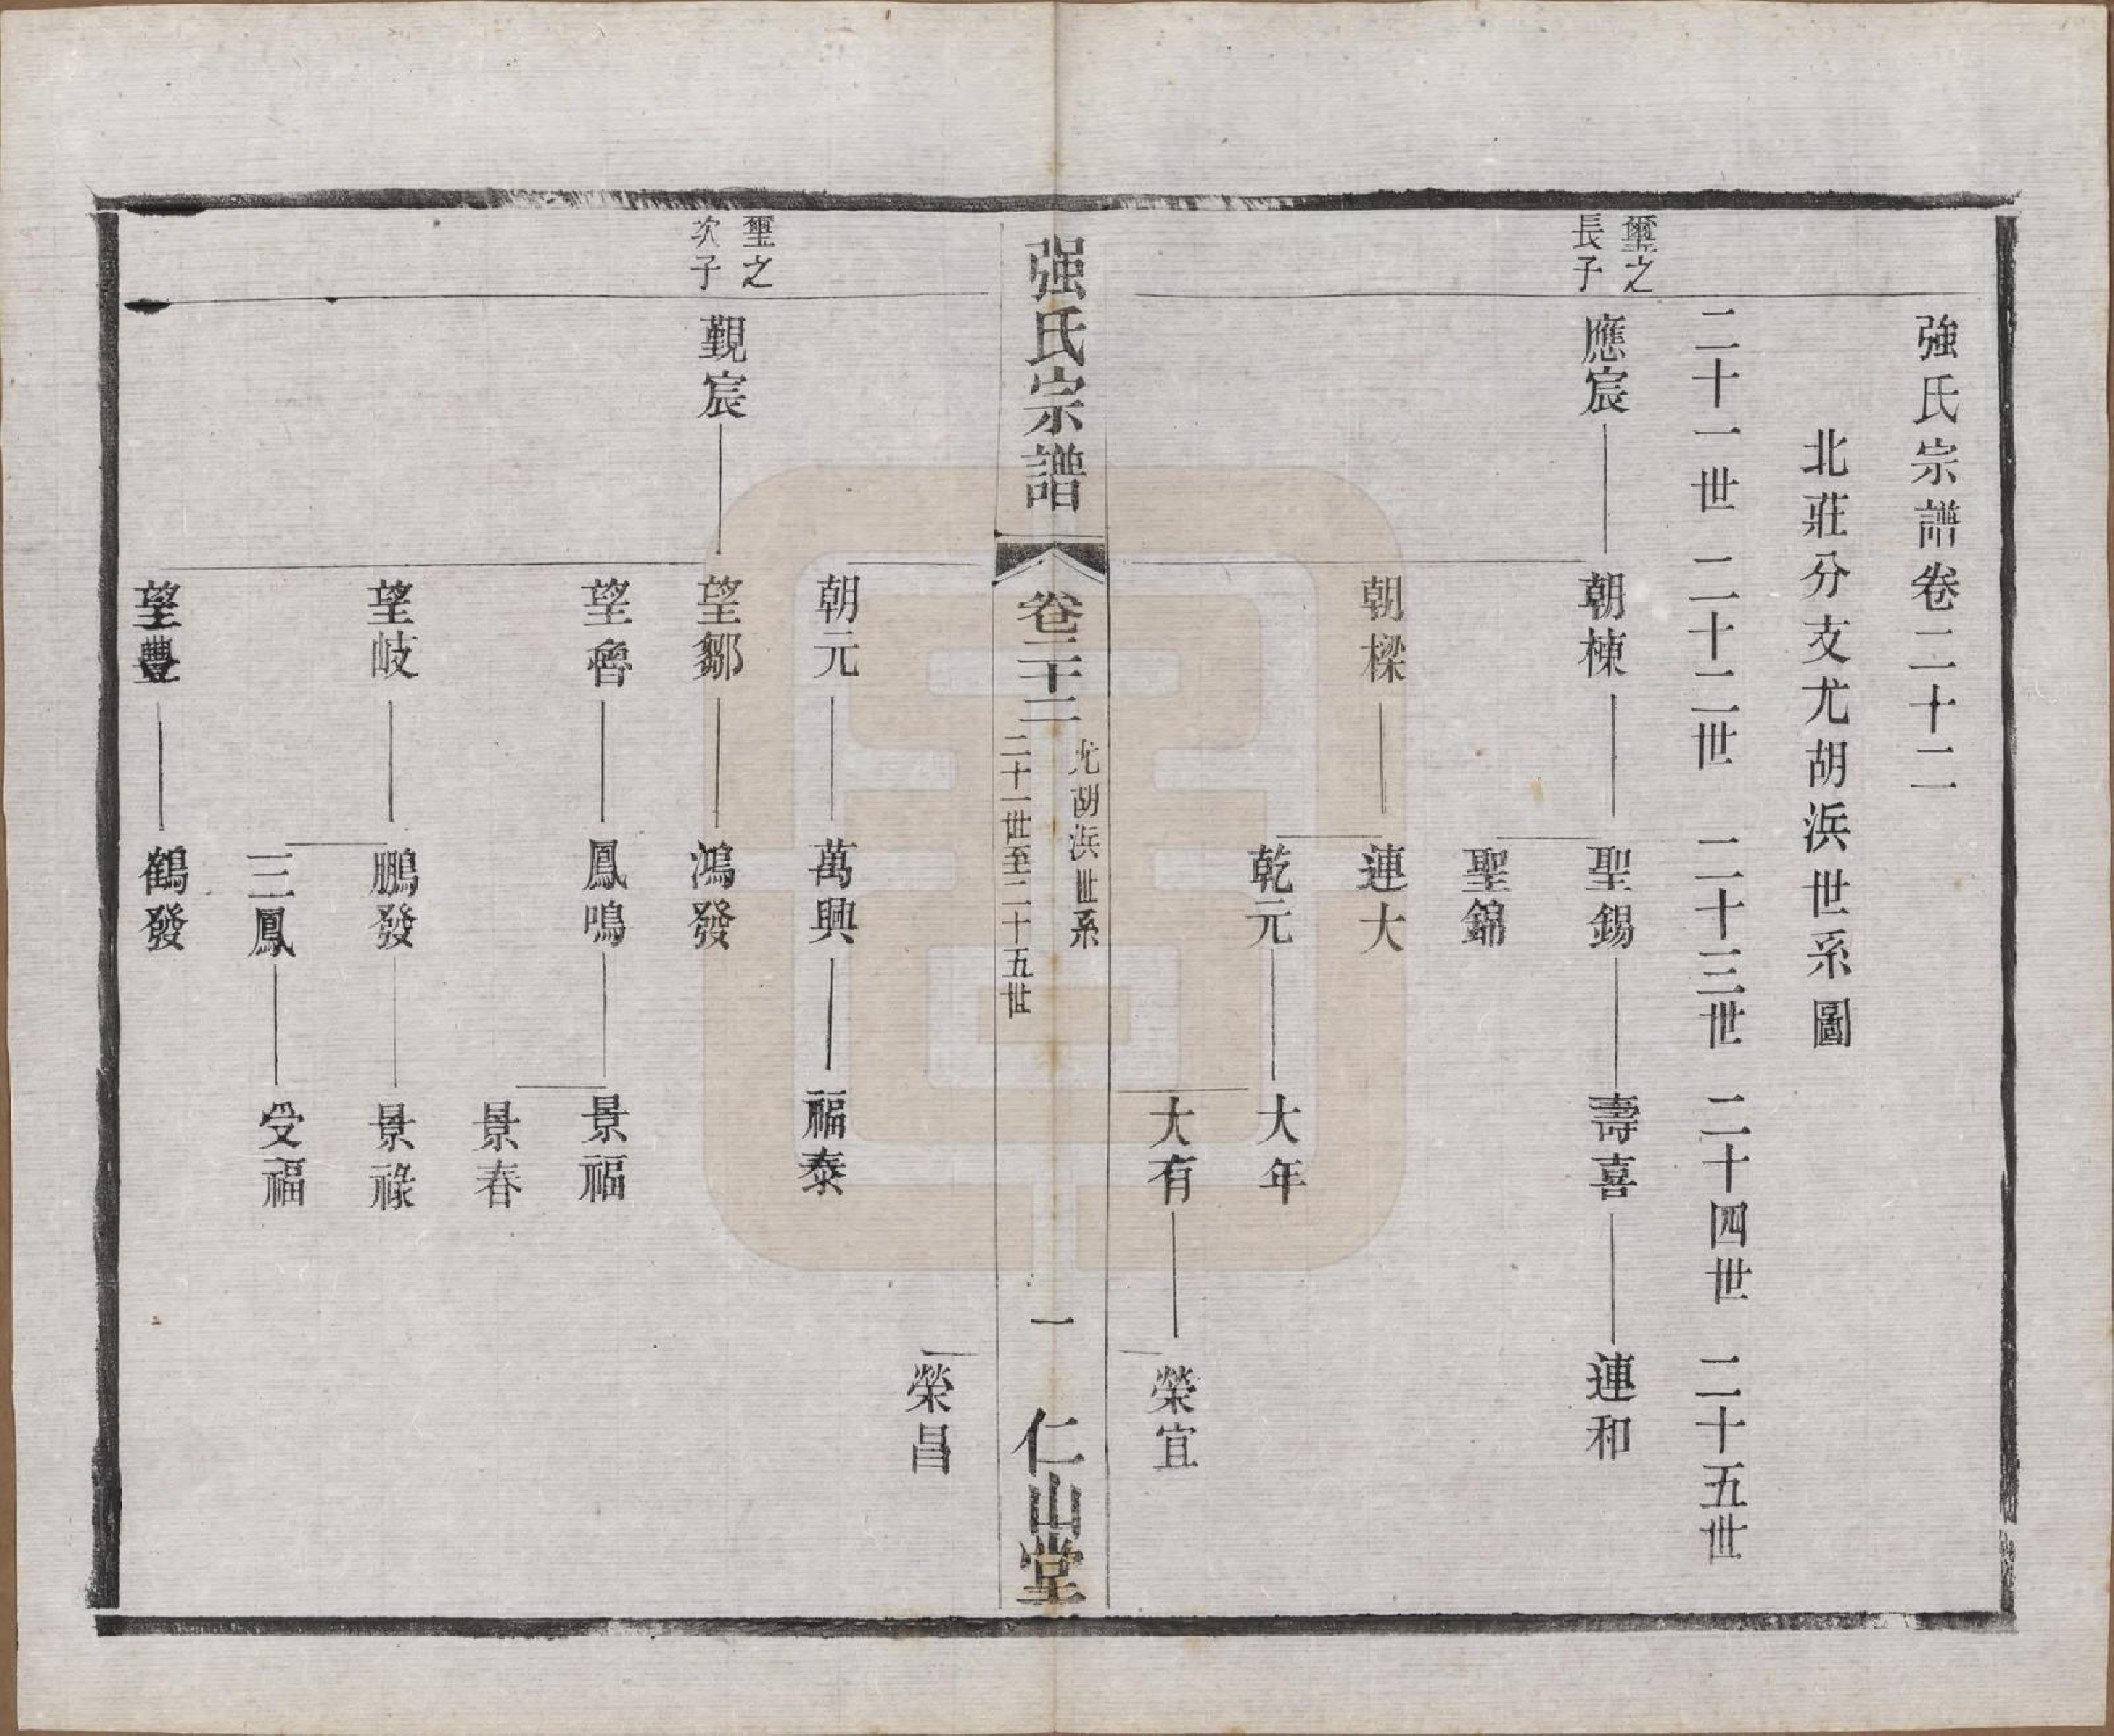 強氏宗譜卷二十二
北莊分支尤胡浜世系圖
二十一世 二十二世 二十三世 二十四世 二十五世
璽之
長子
應宸 朝棟 聖錫 壽喜 連和
聖錦
朝樑 連大
乾元 大年
大有 榮宜
强氏宗譜 卷二十二 尤胡浜世系 二十一世至二十五世 一 仁山堂
榮昌
朝元 萬興 福泰
璽之
次子
覲宸 望鄒 鴻發
望魯 鳳鳴 景福
景春
望岐 鵬發 景祿
三鳳 受福
望豐 鶴發